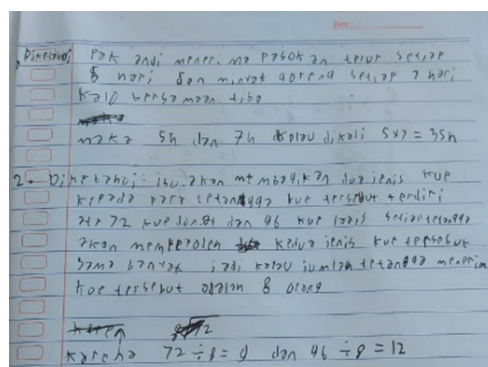 Date:
Diketahui pak andi menerima pasokan telur setiap
5 hari dan minyak goreng setiap 7 hari
kalo bersamaan tiba
maka 5h dan 7h kalau dikali 5x7 = 35h
2. Diketahui: ibu akan membagikan dua jenis kue
kepada para tetangga kue tersebut terdiri
72 kue donat dan 96 kue lapis setiap tetangga
akan memperoleh kedua jenis kue tersebut
sama banyak jadi kalau jumlah tetangga menerim
kue tersebut adalah 8 orang
karena 72 ÷ 8 = 9 dan 96 ÷ 8 = 12